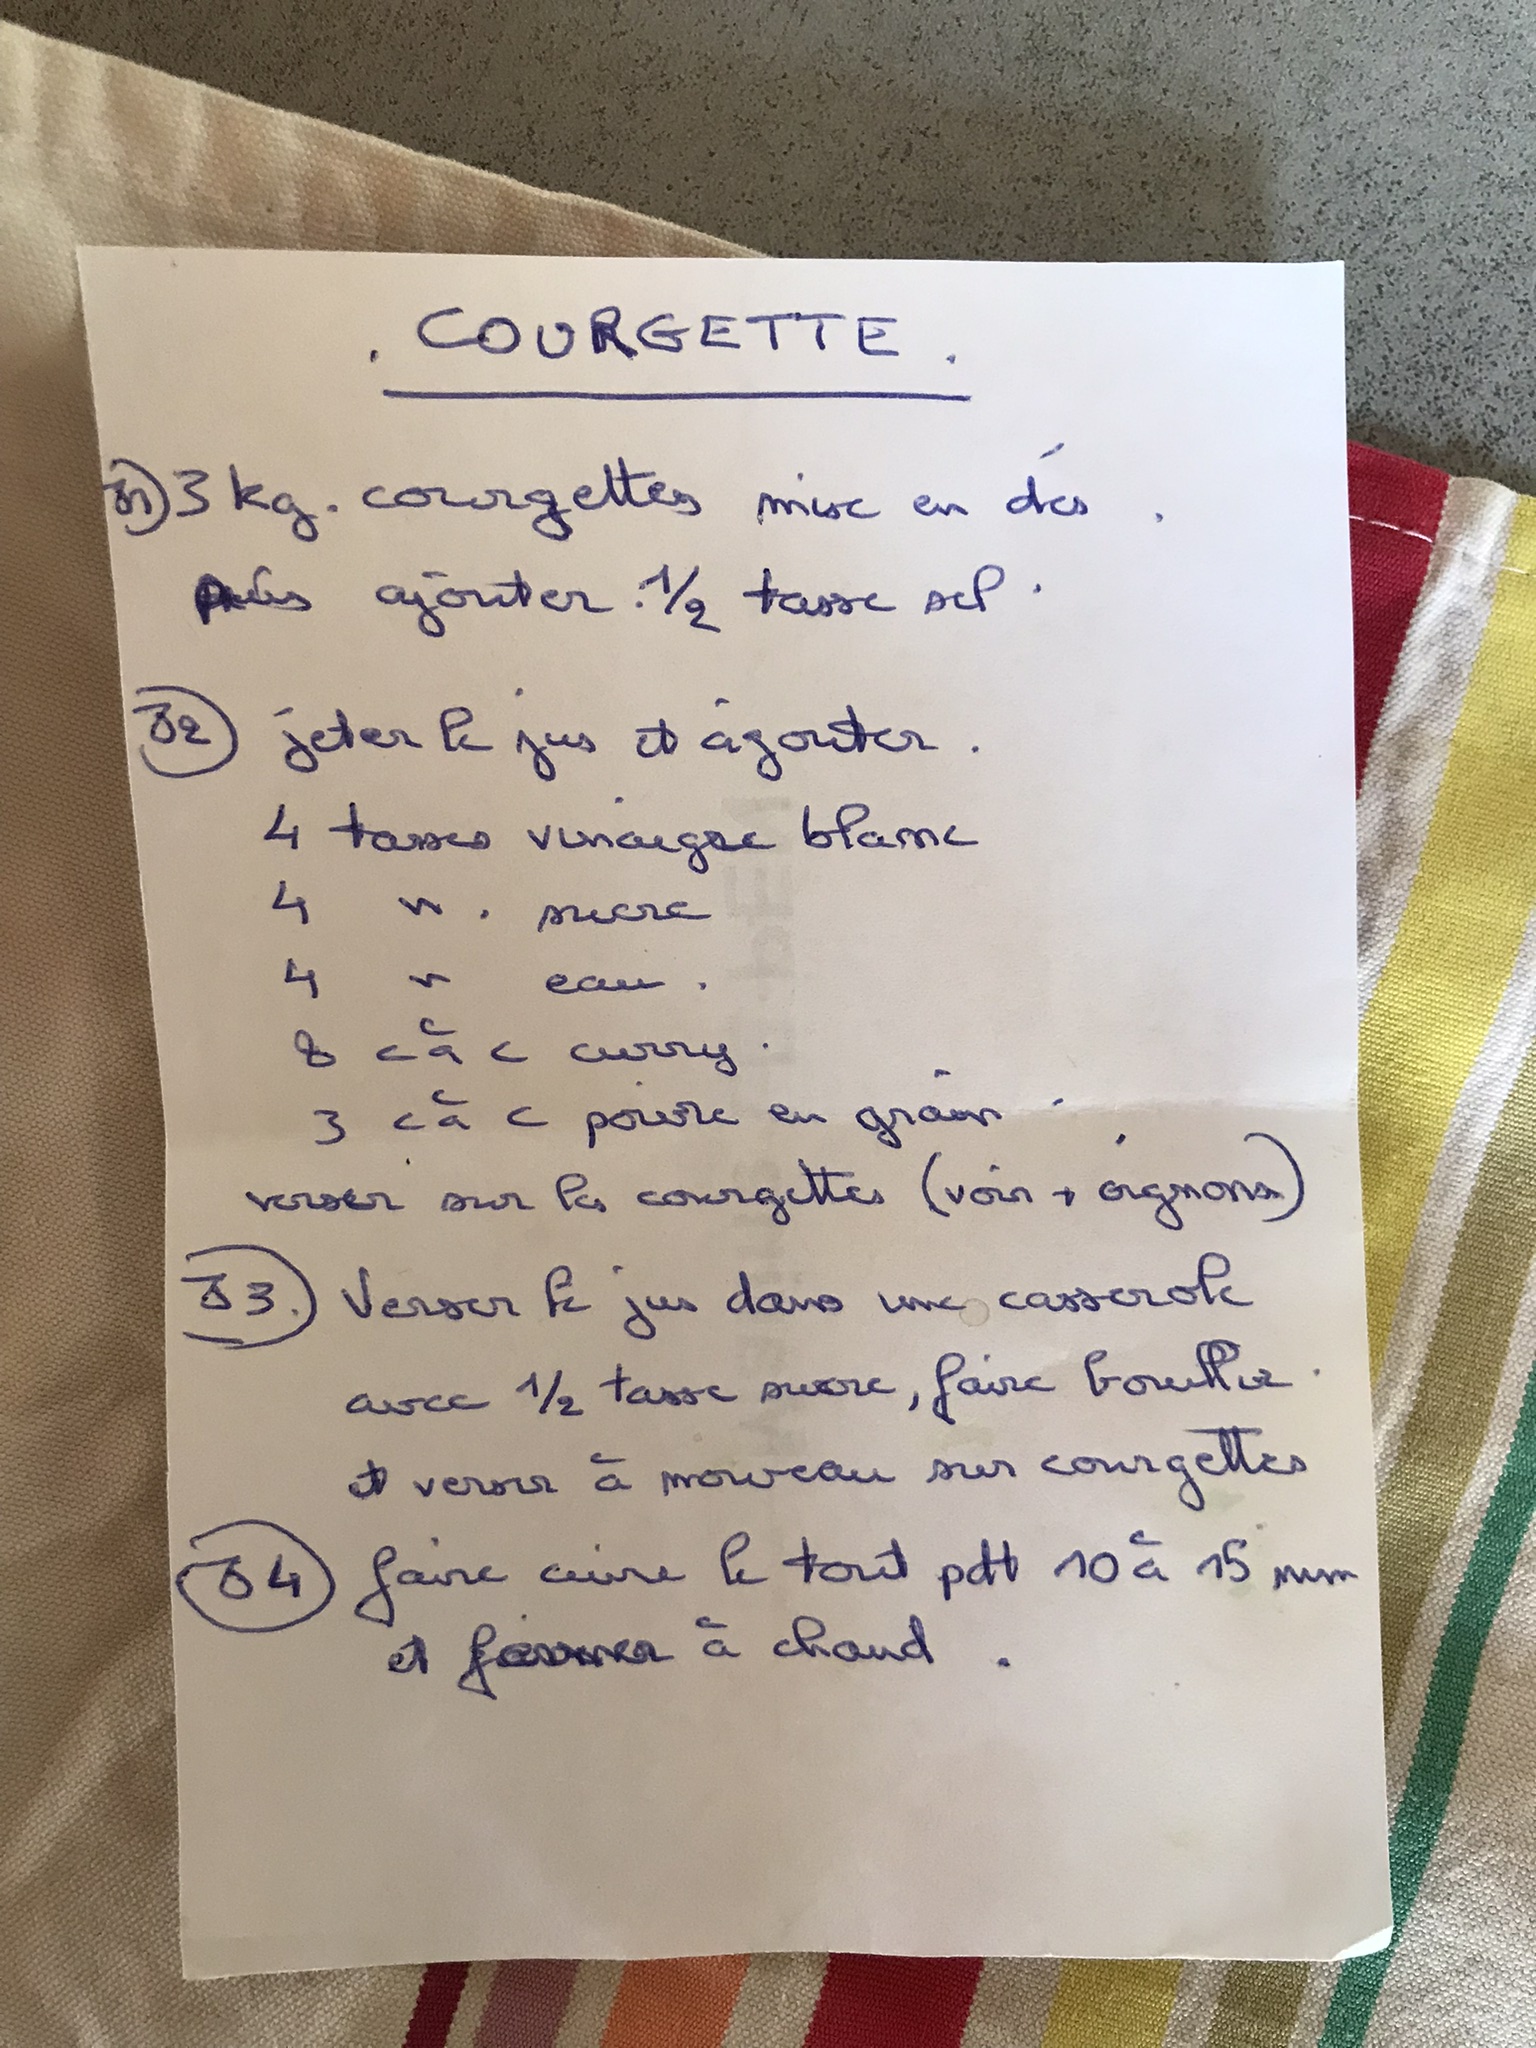 . COURGETTE .
J1) 3 kg. courgettes mise en dés .
puis ajouter 1/2 tasse sel .
J2) jeter le jus et ajouter .
4 tasses vinaigre blanc
4 " . sucre
4 " eau .
8 c à c curry .
3 c à c poivre en grain .
verser sur les courgettes (voir + oignons)
J3. Verser le jus dans une casserole
avec 1/2 tasse sucre, faire bouillir .
et verser à nouveau sur courgettes
J4 faire cuire le tout pdt 10 à 15 mm
et fermer à chaud .